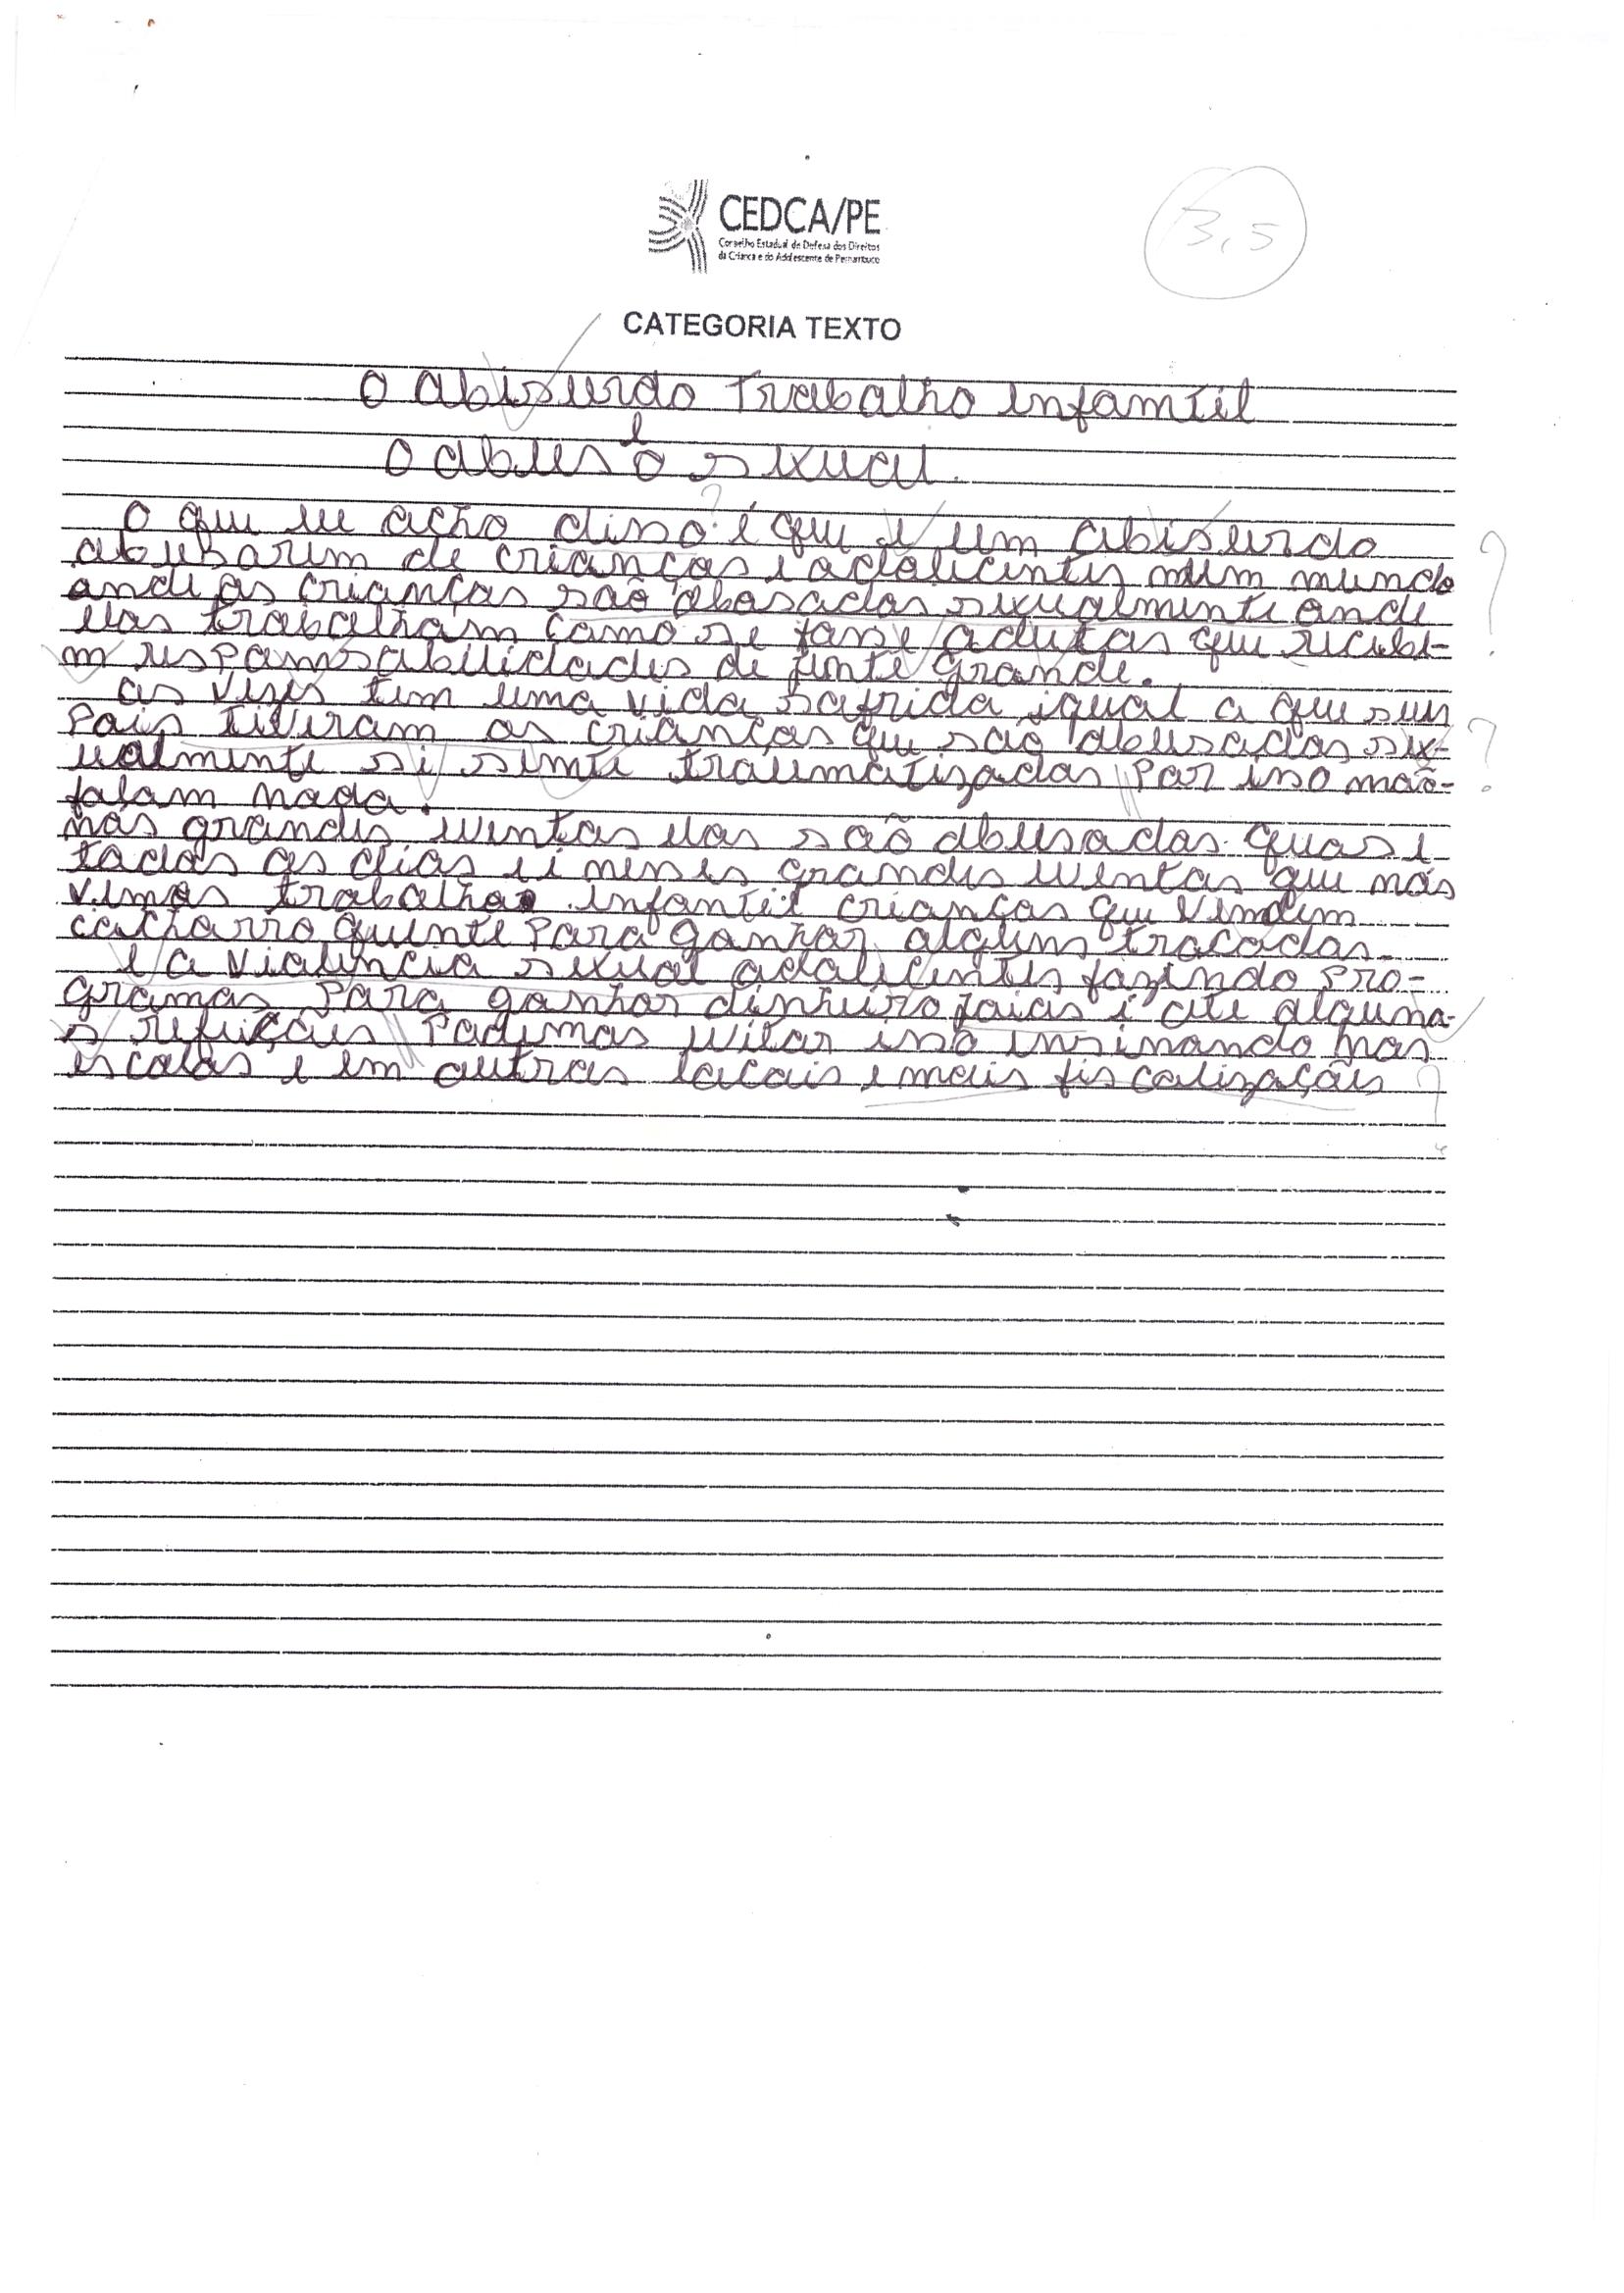 CEDCA/PE
Conselho Estadual de Defesa dos Direitos
da Criança e do Adolescente de Pernambuco
3,5
CATEGORIA TEXTO
O abisurdo Trabalho infamtil
e
o abuso sexual.
O que eu acho disso é que e um abisurdo
abusarem de crianças e adolecentes num mundo
onde as crianças são abosadas sexualmente onde
elas trabalham como se fose adutas que recebe-
m respomsabilidades de jente grande.
as vezes tem uma vida sofrida igual a que seus
pais tiveram as crianças que são abusadas sex-
ualmente si sente traumatizadas por iso não-
falam nada.
nos grandes eventos elas são abusadas quase
todos os dias e i neses grandes eventos que nós
vemos trabalho infantil crianças que vendem
cachorro quente para ganhar alguns trocados
e a violencia sexual adolecentes fazendo pro-
gramas para ganhar dinheiro joias i ate alguma-
s refeições podemos evitar isso ensinando nas
escolas e em outros locais e mais fiscalizações